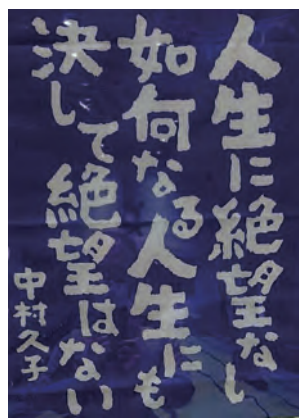 人生に絶望なし
如何なる人生にも
決して絶望はない
中村久子